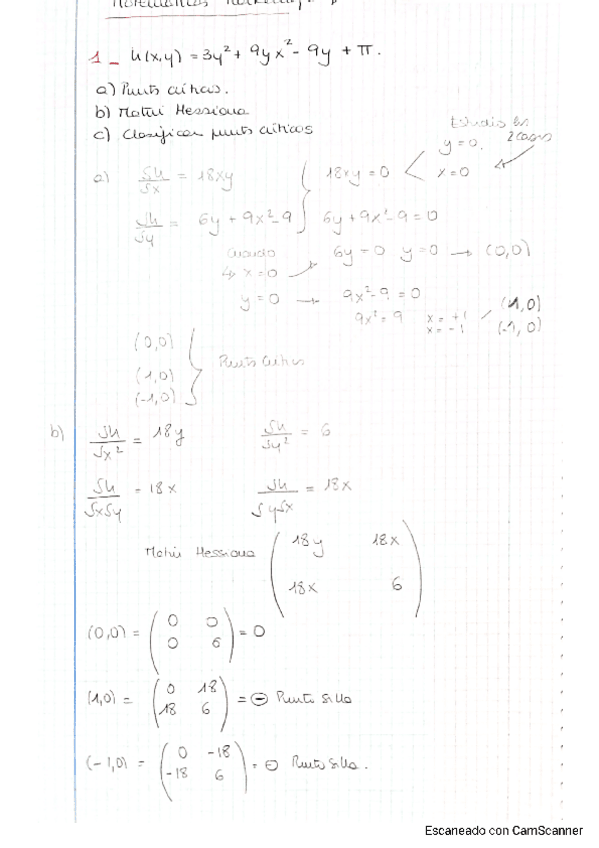 1 - h(x,y) = 3y² + 9yx² - 9y + π.
a) Punts crítics.
b) Matriu Hessiana
c) Classificar punts crítics
Estudio los
2 casos
y=0.
a) δh/δx = 18xy } 18xy = 0 < x=0
δh/δy = 6y + 9x² - 9 } 6y + 9x² - 9 = 0
Cuando
↳ x=0 → 6y=0 y=0 → (0,0)
y=0 → 9x²-9=0
9x²=9 x=+1 (1,0)
x=-1 (-1,0)
(0,0)
(1,0) } Punts crítics
(-1,0)
b) δh/δx² = 18y δh/δy² = 6
δh/δxδy = 18x δh/δyδx = 18x
Matriu Hessiana ( 18y 18x
18x 6 )
(0,0) = ( 0 0
0 6 ) = 0
(1,0) = ( 0 18
18 6 ) = ⊖ Punto Silla
(-1,0) = ( 0 -18
-18 6 ) = ⊖ Punto Silla.
Escaneado con CamScanner